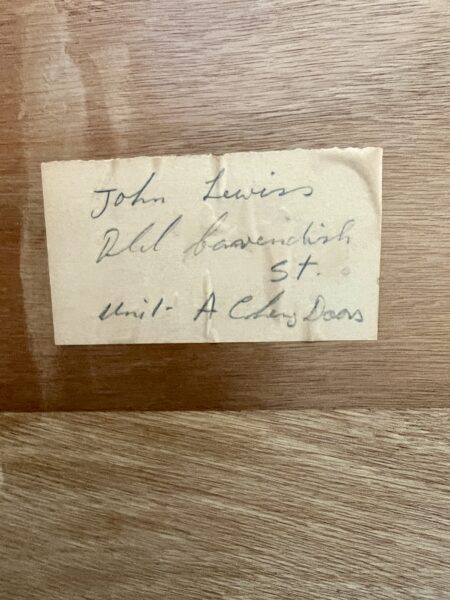 John Lewiss
Old Cavendish
St.
Unit - A Doors